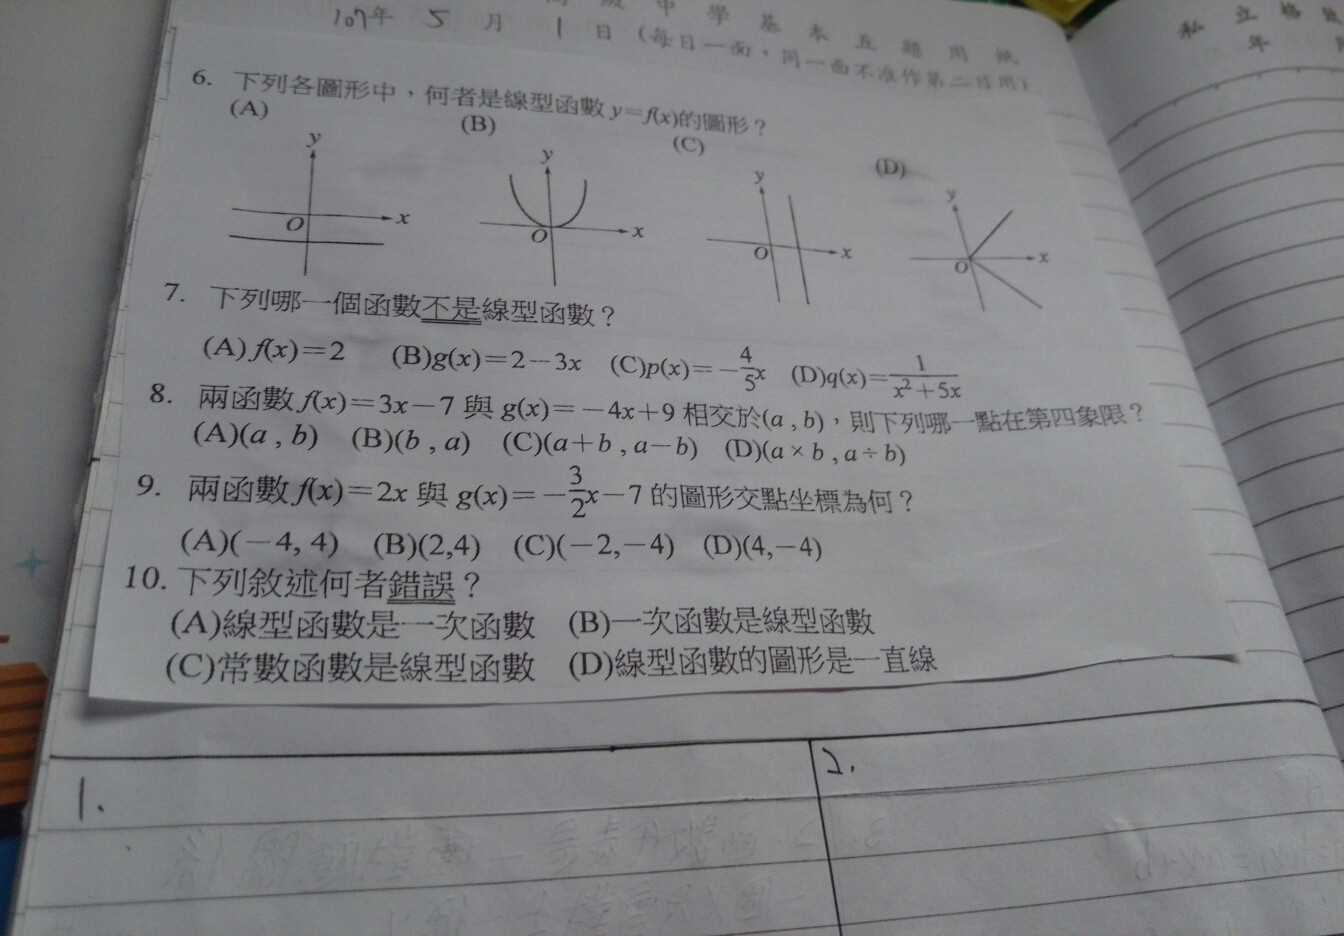 中學基本五題用紙
107年 5 月 1 日 (每日一面，同一面不准作第二日用)
私立
年
6. 下列各圖形中，何者是線型函數 y=f(x)的圖形？
(A) (B) (C) (D)
y y y y
O x O x O x O x
7. 下列哪一個函數不是線型函數？
(A) f(x)=2 (B)g(x)=2-3x (C)p(x)=-4/5x (D)q(x)=1/(x²+5x)
8. 兩函數 f(x)=3x-7 與 g(x)=-4x+9 相交於(a , b)，則下列哪一點在第四象限？
(A)(a , b) (B)(b , a) (C)(a+b , a-b) (D)(a×b , a÷b)
9. 兩函數 f(x)=2x 與 g(x)=-3/2x-7 的圖形交點坐標為何？
(A)(-4, 4) (B)(2,4) (C)(-2,-4) (D)(4,-4)
10. 下列敘述何者錯誤？
(A)線型函數是一次函數 (B)一次函數是線型函數
(C)常數函數是線型函數 (D)線型函數的圖形是一直線
1. 2.